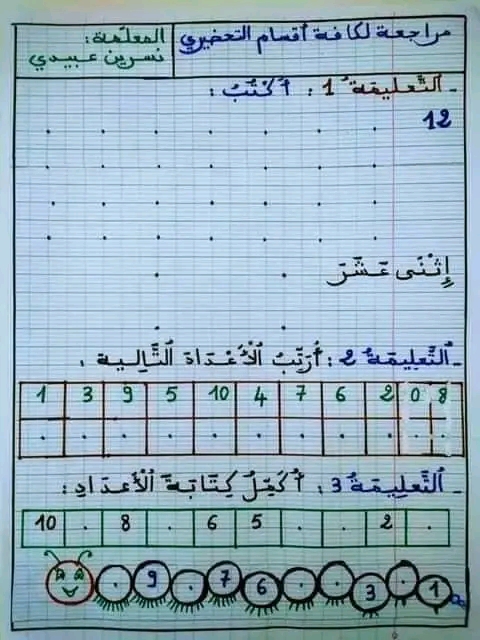 مراجعة لكافة أقسام التحضيري
المعلمة:
نسرين عبيدي
- التَّعليمَة 1: أَكْتُبُ:
12
إِثْنَى عَشَرَ
- التَّعْلِيمَة 2: أُرَتِّبُ الْأَعْدَادَ التَّالِية:
1 3 9 5 10 4 7 6 2 0 8
- التَّعْلِيمَةُ 3: أُكَمِّلُ كِتَابَةَ الْأَعْدَادِ:
10 . 8 . 6 5 . . 2 .
. 9 . 7 6 . . 3 . 1